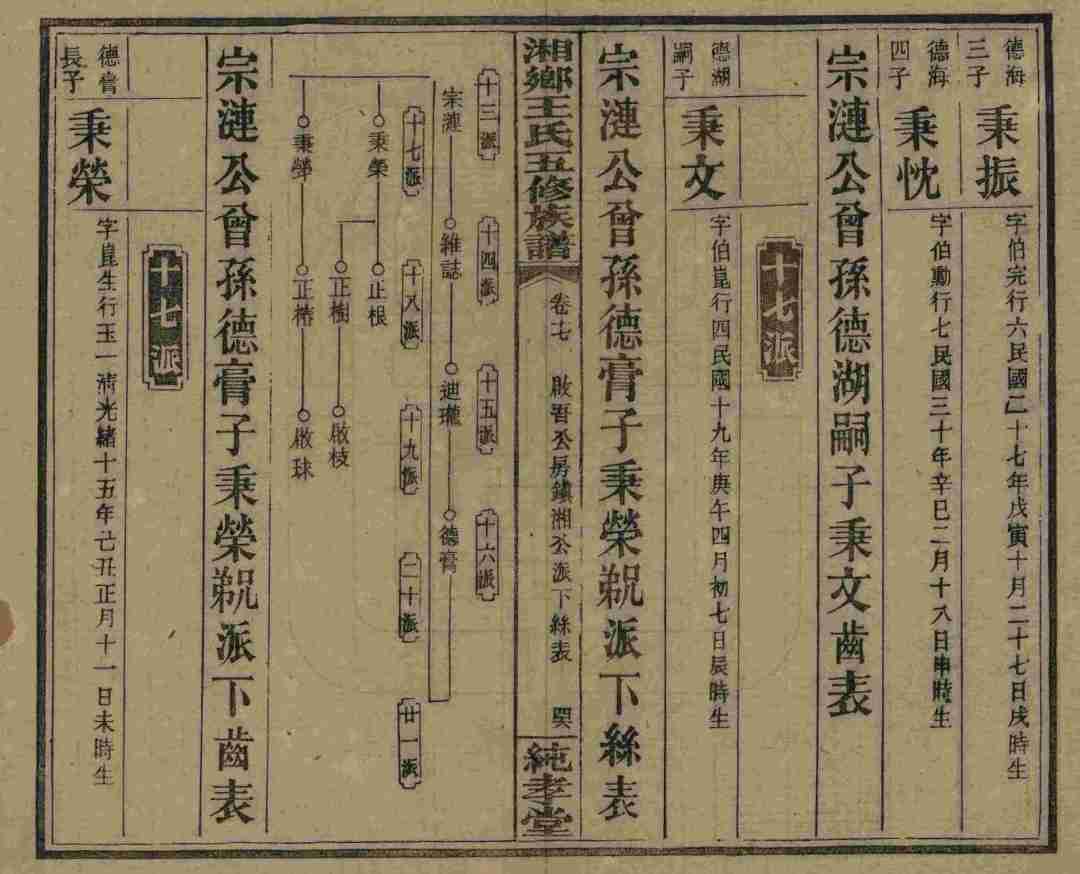 德海
三子
秉振
字伯完行六民國二十七年戊寅十月二十七日戌時生
德海
四子
秉忱
字伯勳行七民國三十年辛巳二月十八日申時生
宗漣公曾孫德湖嗣子秉文齒表
十七派
德湖
嗣子
秉文
字伯崑行四民國十九年庚午四月初七日辰時生
宗漣公曾孫德膏子秉榮派下絲表
湘鄉王氏五修族譜
卷七
啟晋公房鎮湘公派下絲表
純孝堂
十三派
十四派
十五派
十六派
宗漣
維誌
迪瓏
德膏
十七派
十八派
十九派
二十派
廿一派
秉榮
正根
正樹
啟棱
秉勞
正椿
啟球
宗漣公曾孫德膏子秉榮派下齒表
十七派
德膏
長子
秉榮
字崑生行玉一清光緒十五年己丑正月十一日未時生